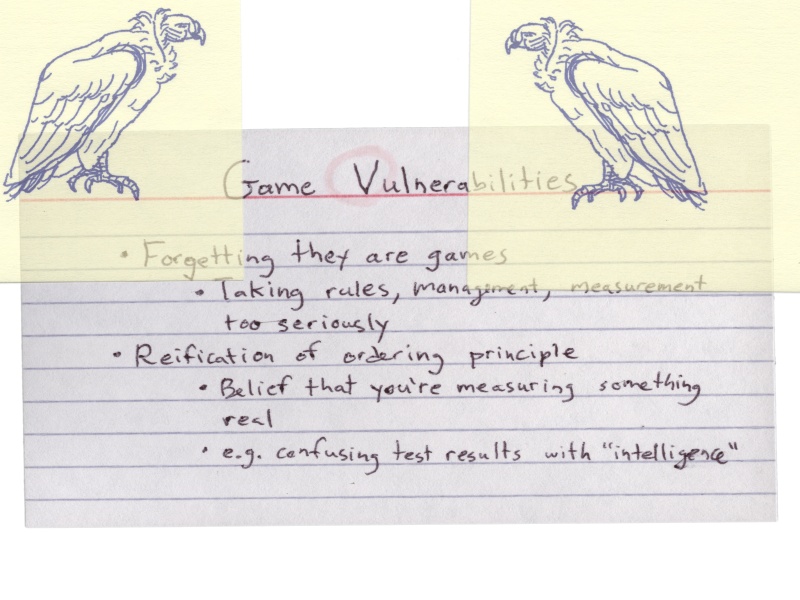 Game Vulnerabilities
• Forgetting they are games
• Taking rules, management, measurement
too seriously
• Reification of ordering principle
• Belief that you're measuring something
real
• e.g. confusing test results with "intelligence"